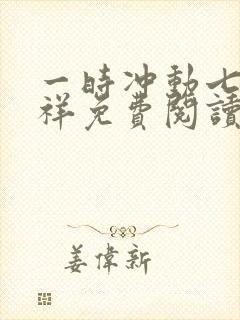 一時冲動七
祥免費閱讀
姜偉新